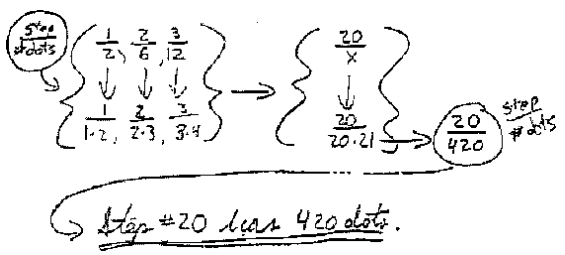 Step/#dots
1/2, 2/6, 3/12 → 20/x
1/1·2, 2/2·3, 3/3·4 → 20/20·21 → 20/420 step/#dots
Step #20 has 420 dots.